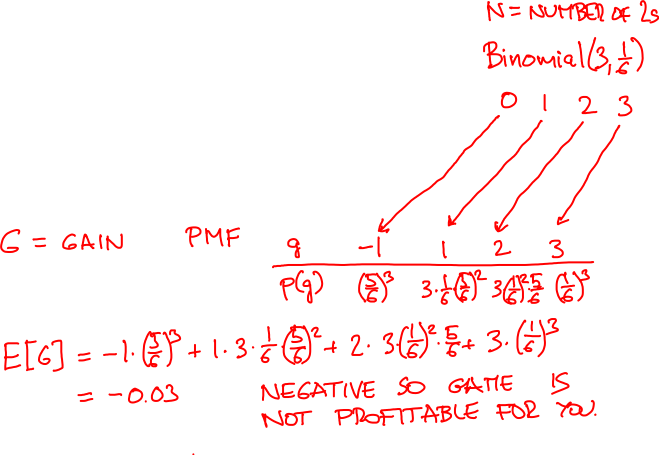 N = NUMBER OF 2s
Binomial(3, 1/6)
0 1 2 3
G = GAIN PMF g -1 1 2 3
p(g) (5/6)³ 3·1/6(5/6)² 3(1/6)²5/6 (1/6)³
E[G] = -1·(5/6)³ + 1·3·1/6·(5/6)² + 2·3(1/6)²·5/6 + 3·(1/6)³
= -0.03 NEGATIVE SO GAME IS
NOT PROFITABLE FOR YOU.